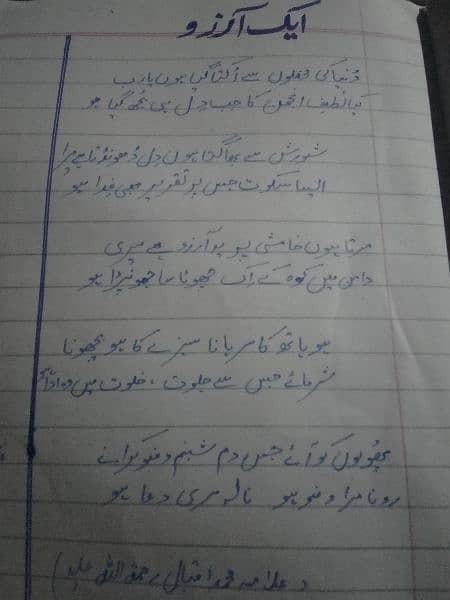 ایک آرزو
دُنیا کی محفلوں سے اُکتا گیا ہوں یا رب
کیا لُطف انجمن کا جب دل ہی بُجھ گیا ہو
شورش سے بھاگتا ہوں دل ڈھونڈتا ہے مرا
ایسا سکوت جس پر تقریر بھی فِدا ہو
مرتا ہوں خامشی پر یہ آرزو ہے میری
دامن میں کوہ کے اک چھوٹا سا جھونپڑا ہو
ہو ہاتھ کا سرہانا سبزے کا ہو بچھونا
شرمائے جس سے جلوت، خلوت میں وہ ادا ہو
پھُولوں کو آئے جس دم شبنم وضو کرانے
رونا مرا وضو ہو نالہ مری دعا ہو
(علامہ محمد اقبال رحمۃ اللہ علیہ)